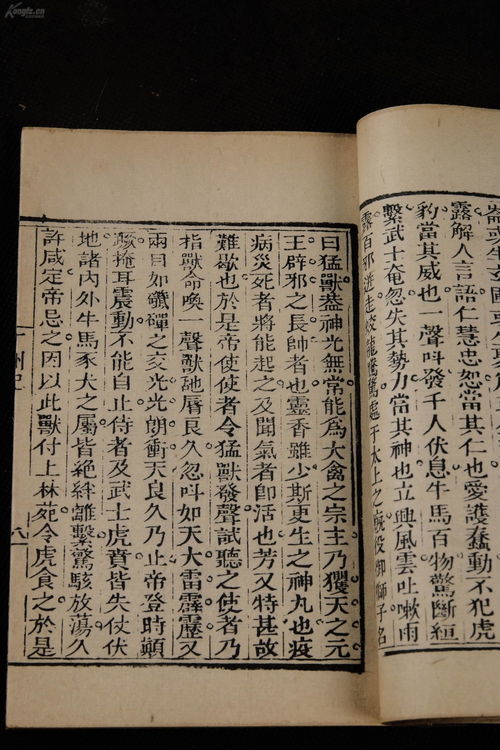 Kongfz.cn
露解人言語仁慧忠恕當其仁也愛護蠢動不犯虎
豹當其威也一聲呌發千人伏息牛馬百物驚斷絙
繫武士奄忽失其勢力當其神也立興風雲吐嗽雨
露百邪迸走蛟龍驚處于太上之廏役御獅子名
曰猛獸葢神光無常能爲大禽之宗主乃玃天之元
王辟邪之長帥者也靈香雖少斯更生之神丸也疫
病災死者將能起之及聞氣者卽活也芳又特甚故
難歇也於是帝使使者令猛獸發聲試聽之使者乃
指獸命喚一聲獸䑛唇良久忽呌如天大雷霹靂又
兩目如磾之交光光朗衝天良久乃止帝登時顛
蹶掩耳震動不能自止侍者及武士虎賁皆失仗伏
地諸內外牛馬豕犬之屬皆絕絆離繫驚駭放蕩久
許咸定帝忌之因以此獸付上林苑令虎食之於是
洲記
八